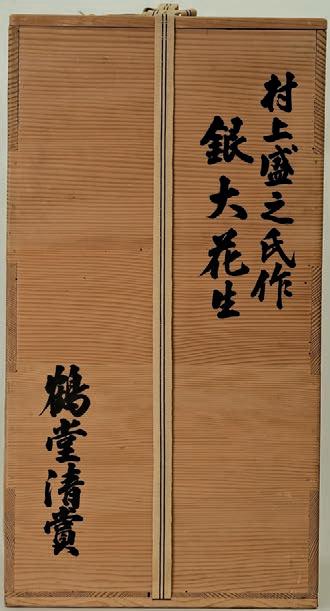 村上盛之氏作
銀大花生
鶴堂清賞